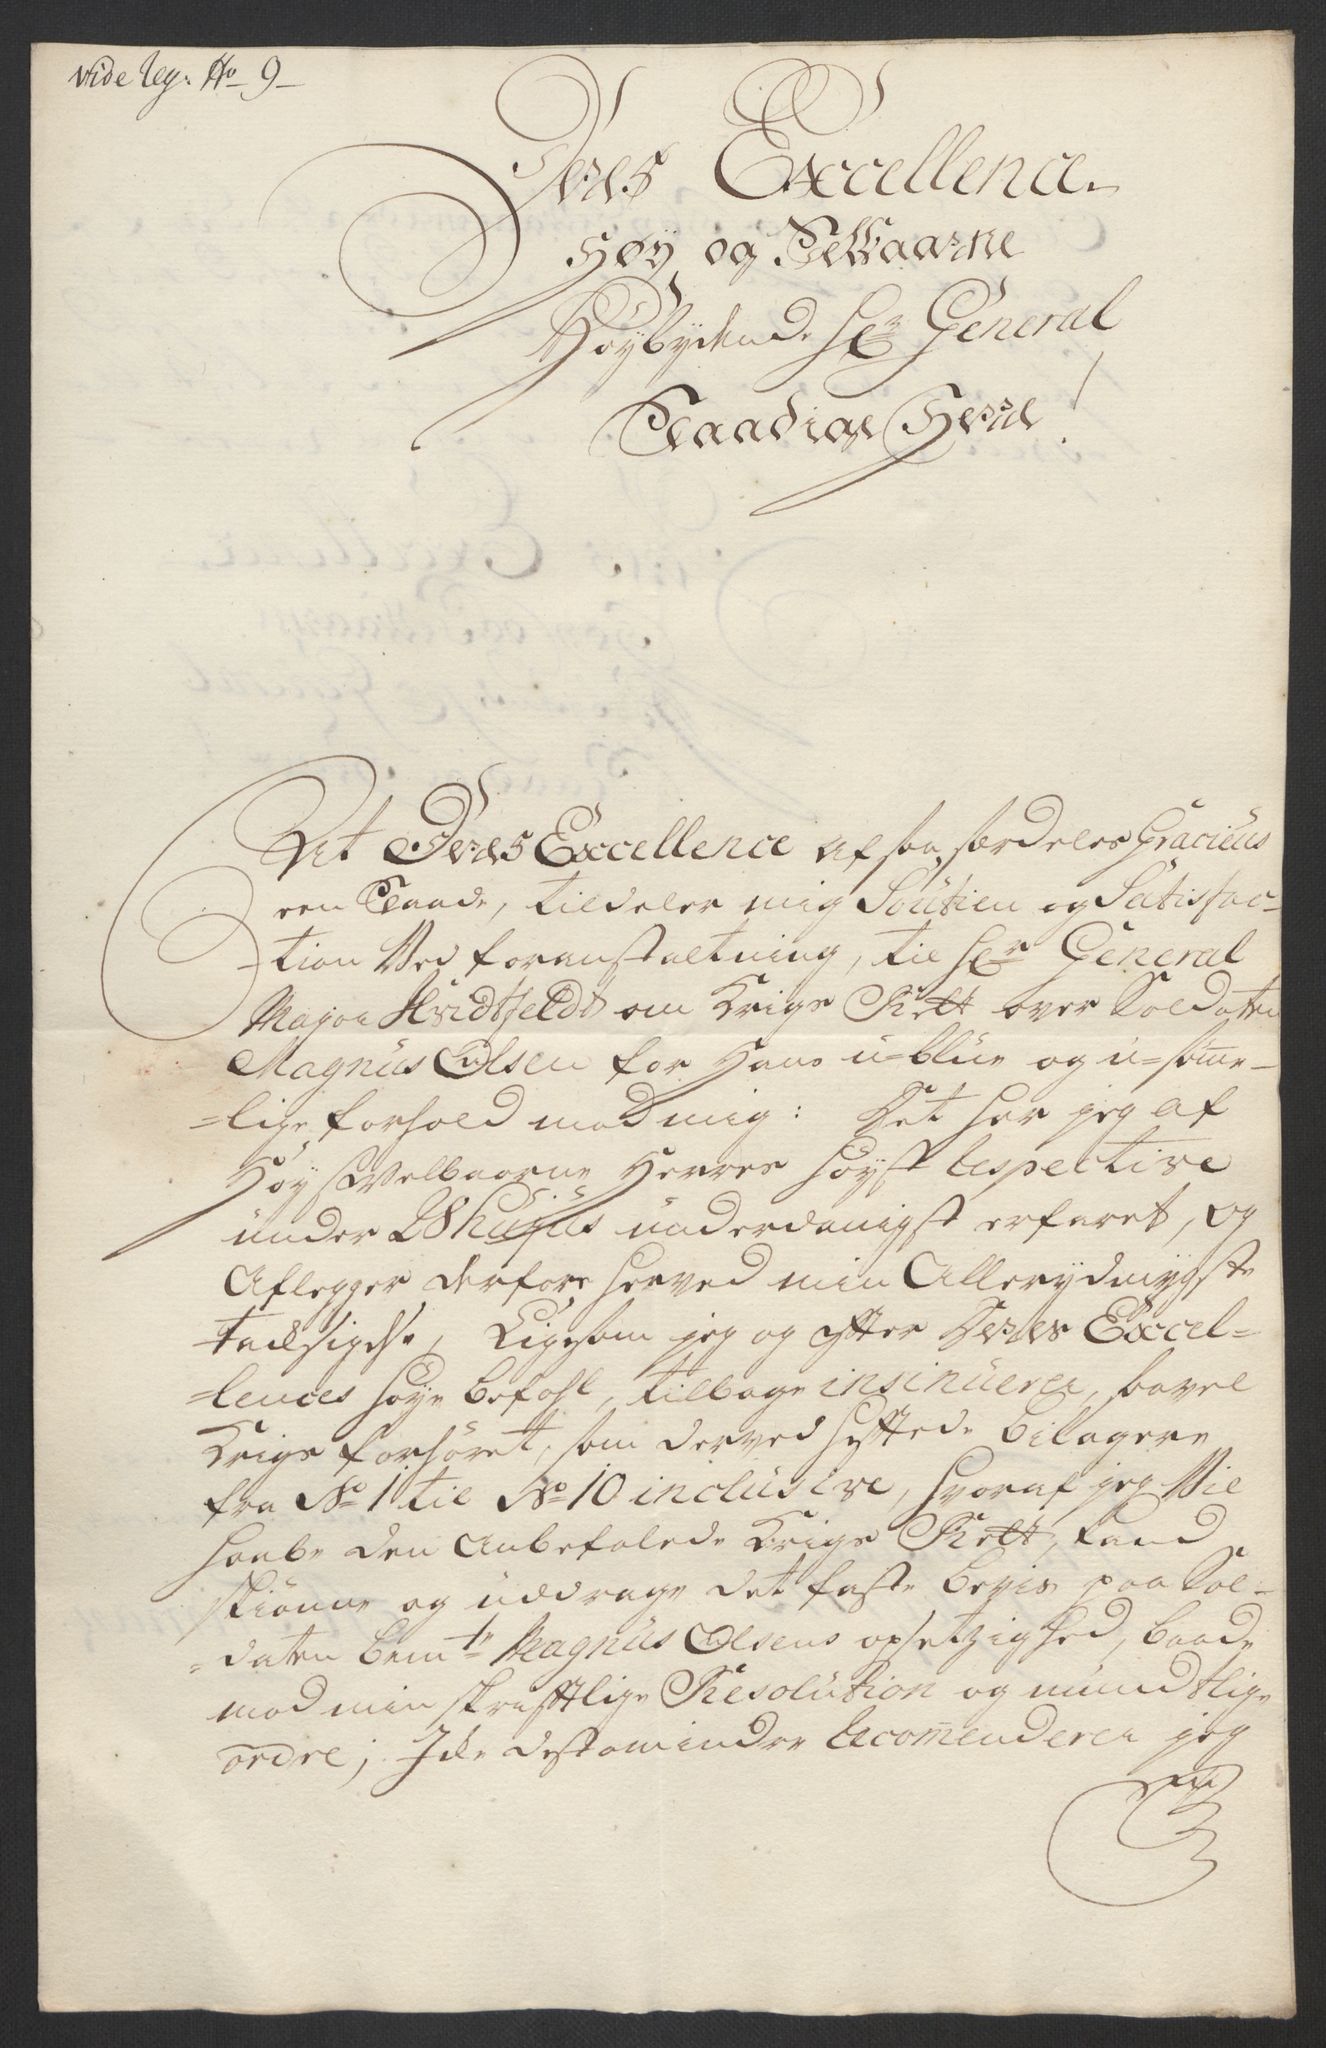 vide reg: No 9
Deres Excellence
Høy og Velbaarne
Høybydende Hr General
Naadige Herre!
At Deres Excellence af saa særdeles Gracieus
een Naade, tildeler mig Soutien og Satisfac-
-tion Ved foranstaltning, til Hr General
Major Hvidtfeldt om Krigs Rett over Soldaten
Magnus Olsen for Hans u-blue og u-sømme-
-lige forhold mod mig: Det har jeg af
Høy Velbaarne Herres høyst respective
under 28 hujus underdanigst erfaret, og
Aflegger derfore herved min Allerydmygste
Taksigelse, Ligesom jeg og efter Deres Excel-
-lences høye befahl, tilbage insinuerer, savel
Krigs forhöret, som derved heftede bilagere
fra No 1 til No 10 inclusive, hvoraf jeg Vil
haabe den Anbefalede Krigs Rett, kand
skiönne og uddrage det faste beviis paa Sol-
-daten bemte Magnus Olsens opsetzighed, baade
mod min skrifftlige Resolution og mundtlige
ordre; Icke destomindre recommenderer jeg